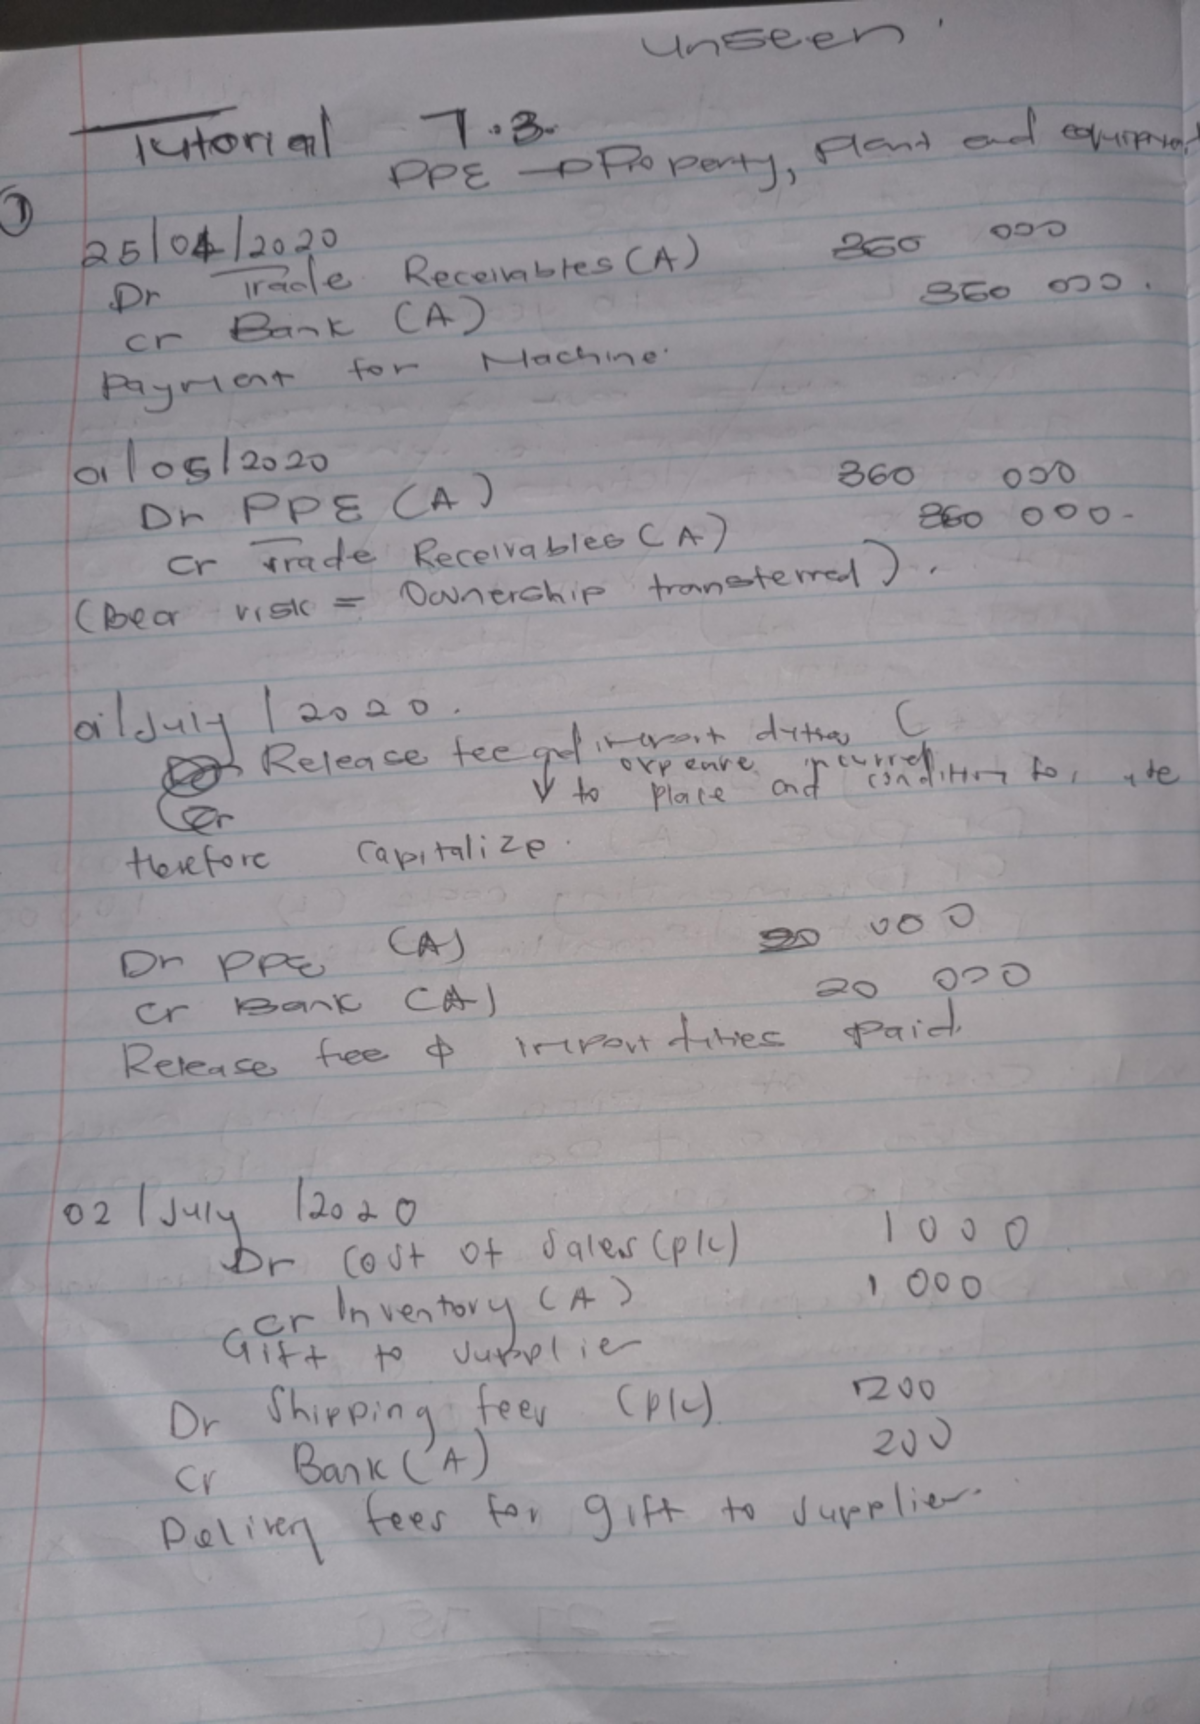 unseen
Tutorial 7.3.
PPE → Property, Plant and equipment
①
25/04/2020
Dr Trade Receivables (A) 360 000
cr Bank (A) 360 000.
Payment for Machine.
01/05/2020
Dr PPE (A) 360 000
cr Trade Receivables (A) 360 000-
(Bear risk = Ownership transferred).
01/July/2020.
Release fee and import duties (
expense incurred
↓ to place and condition for
Cr
therefore capitalize.
Dr PPE (A) 20 000
cr Bank (A) 20 000
Release fee & import duties paid.
02/July/2020
Dr Cost of Sales (P/L) 1 000
cr Inventory (A) 1 000
Gift to supplier
Dr Shipping fees (P/L) 200
cr Bank (A) 200
Delivery fees for gift to supplier.